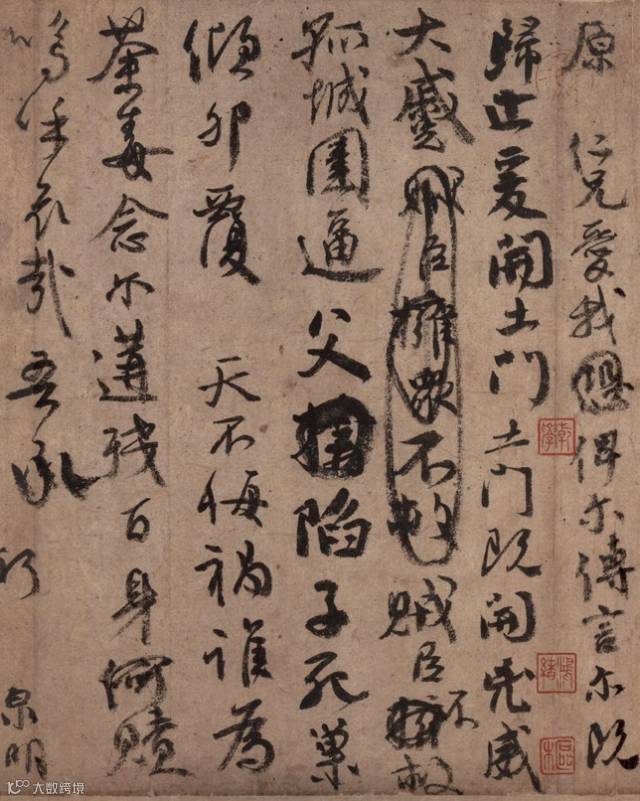 原仁兄愛我俾尔傳言尔既
歸止爰開土門土門既開兇威
大蹙賊臣擁衆不救賊臣不救
孤城圍逼父陷子死巢
傾卵覆天不悔禍誰為
荼毒念尔遘殘百身何贖
嗚呼哀哉吾承
泉明
大数跨境